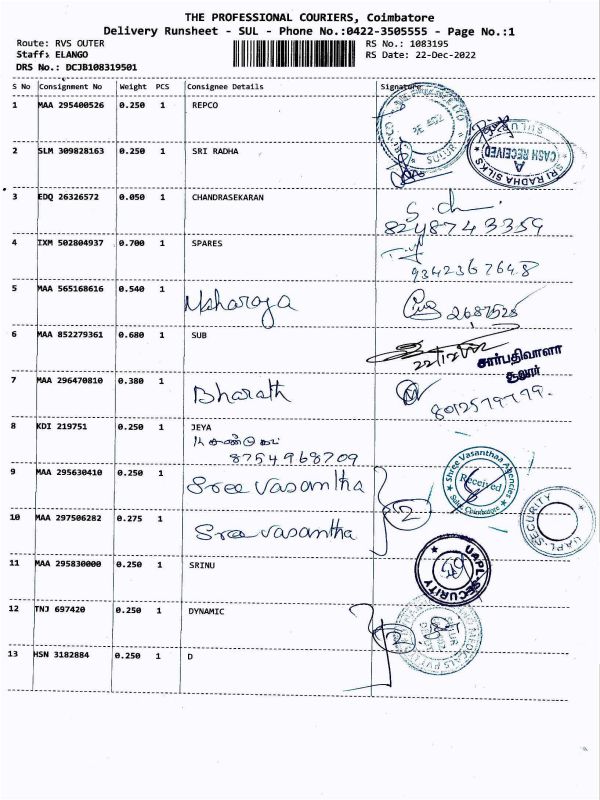 THE PROFESSIONAL COURIERS, Coimbatore
Delivery Runsheet - SUL - Phone No.:0422-3505555 - Page No.:1
Route: RVS OUTER
RS No.: 1083195
Staff: ELANGO
RS Date: 22-Dec-2022
DRS No.: DCJB108319501
S No Consignment No Weight PCS Consignee Details Signature
1 MAA 295400526 0.250 1 REPCO
SULUR
2 SLM 309828163 0.250 1 SRI RADHA
SULUR
CASH RECEIVED
SRI RADHA SILKS
3 EDQ 26326572 0.050 1 CHANDRASEKARAN
8248743359
4 IXM 502804937 0.700 1 SPARES
9342367648
5 MAA 565168616 0.540 1 Maharaja
2687525
6 MAA 852279361 0.680 1 SUB
சார்பதிவாளர்
சூலூர்
7 MAA 296470810 0.380 1 Bharath
8 KDI 219751 0.250 1 JEYA
8754968709
9 MAA 295630410 0.250 1 Sree Vasantha
Shree Vasanthaa Agencies
Received
Sulur Coimbatore
2
10 MAA 297506282 0.275 1 Sree Vasantha
UAPL-SECURITY
11 MAA 295830000 0.250 1 SRINU
UAPL-SECURITY
12 TNJ 697420 0.250 1 DYNAMIC
2
13 HSN 3182884 0.250 1 D